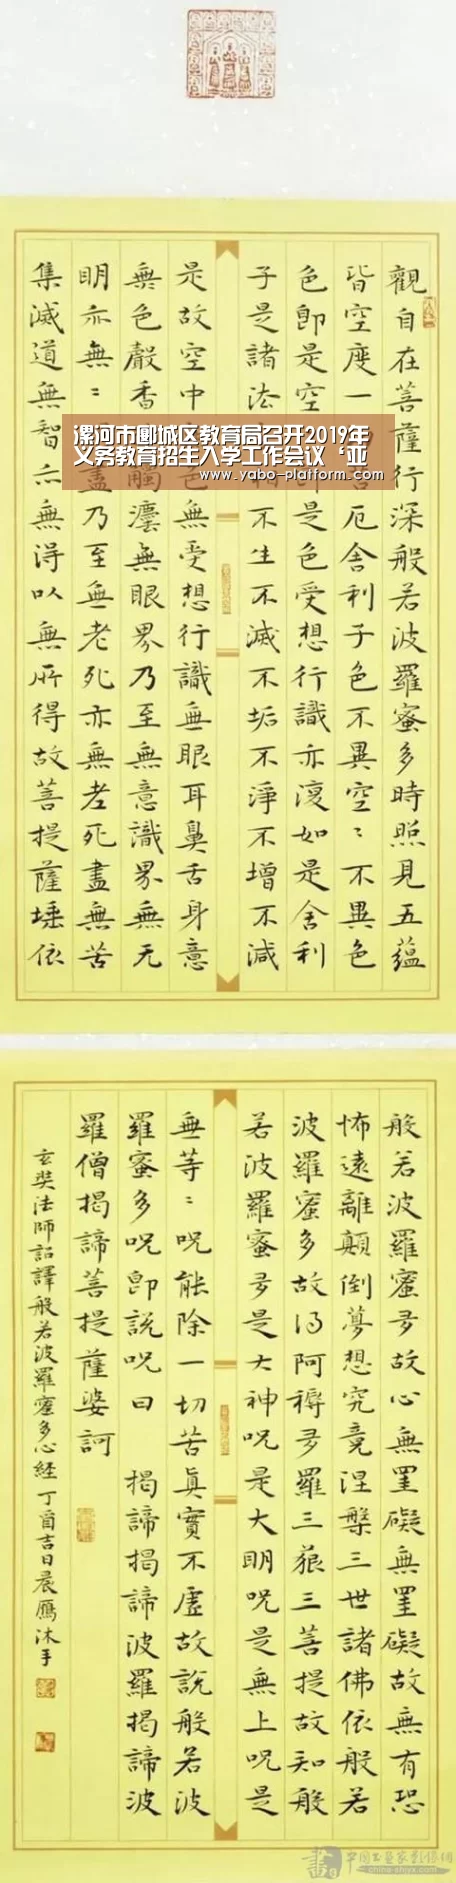 觀自在菩薩行深般若波羅蜜多時照見五蘊
皆空度一苦厄舍利子色不異空〻不異色
色即是空即是色受想行識亦復如是舍利
子是諸法相不生不滅不垢不淨不增不減
是故空中色無受想行識無眼耳鼻舌身意
無色聲香觸塵無眼界乃至無意識界無无
明亦無〻盡乃至無老死亦無老死盡無苦
集滅道無智亦無得以無所得故菩提薩埵依
漯河市郾城区教育局召开2019年
义务教育招生入学工作会议‘亚
www.yabo-platform.com
般若波羅蜜多故心無罣礙無罣礙故無有恐
怖遠離顛倒夢想究竟涅槃三世諸佛依般若
波羅蜜多故得阿耨多羅三藐三菩提故知般
若波羅蜜多是大神呪是大明呪是無上呪是
無等〻呪能除一切苦真實不虛故說般若波
羅蜜多呪即說呪曰 揭諦揭諦波羅揭諦波
羅僧揭諦菩提薩婆訶
玄奘法師詔譯般若波羅蜜多心經丁酉吉日晨雁沐手
中国书画家影像网